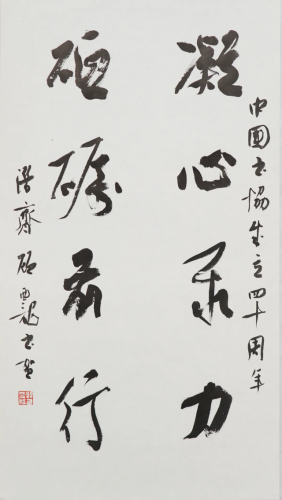 中國书協成立四十周年
凝心聚力
砥礪前行
齋顧亞龍书賀